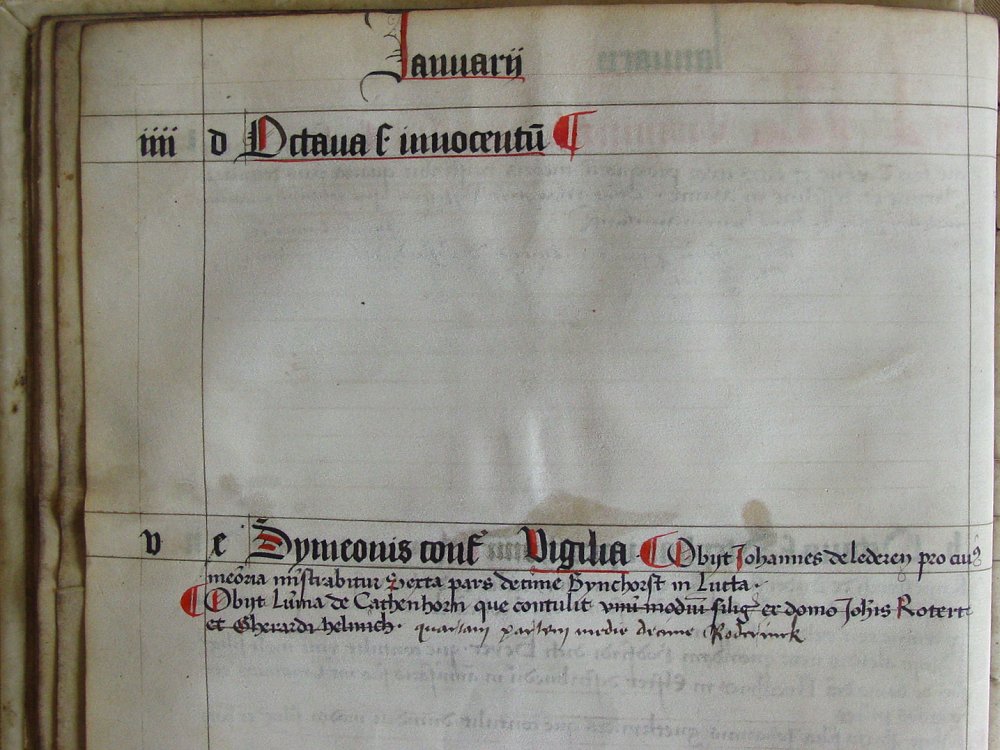 Januarij
iiii d Octaua s innocentū
v e Symeonis conf Vigilia Obijt Johannes de lederen pro cuiꝰ
meōria mīstrabitur Sexta pars decime Bynchorst in Lucta
Obijt de Cathenhorn que contulit vnū modiū silig ex domo Joh̄is Rotert
et Gherardi helmich quartam partem medie decime Roderinck